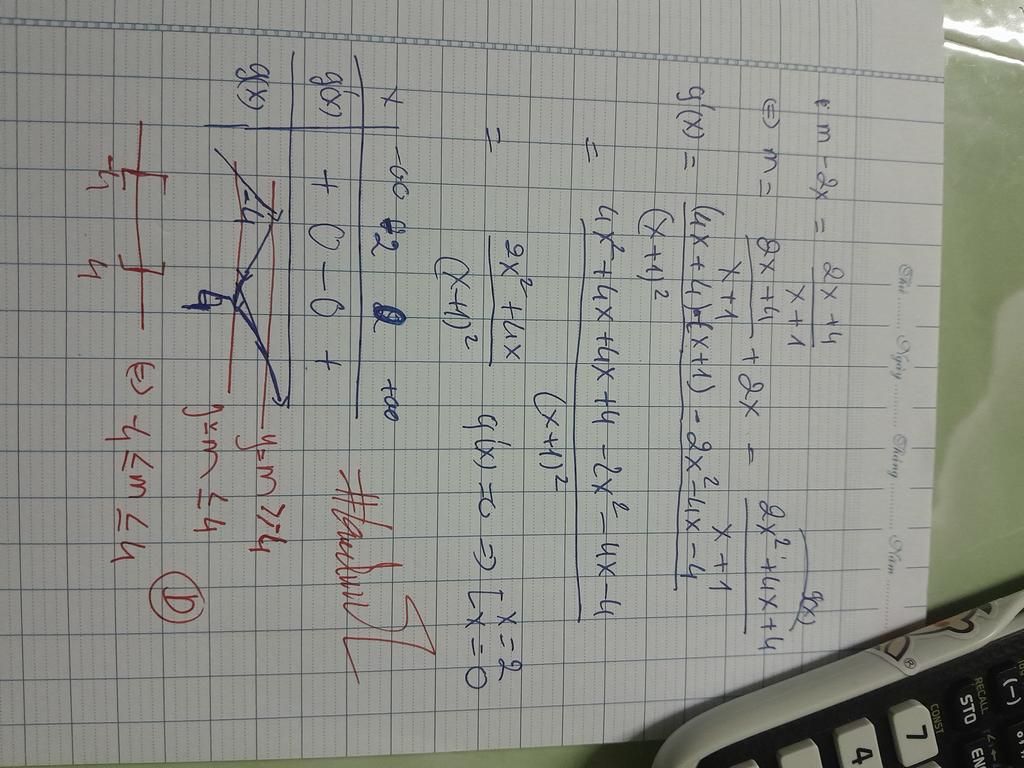 Thứ ........ Ngày ........ Tháng ........ Năm ........
m - 2x = \frac{2x+4}{x+1}
g(x)
⇔ m = \frac{2x+4}{x+1} + 2x = \frac{2x^2+4x+4}{x+1}
g'(x) = \frac{(4x+4)(x+1) - 2x^2-4x-4}{(x+1)^2}
= \frac{4x^2+4x+4x+4-2x^2-4x-4}{(x+1)^2}
= \frac{2x^2+4x}{(x+1)^2} g'(x)=0 ⇒ [x=2 x=0
x -∞ -2 0 +∞
g'(x) + 0 - 0 +
g(x) -4 4
y=m ≥ -4
y=m ≤ 4
-4 4 ⇔ -4 ≤ m ≤ 4
D
CONST
RECALL
STO
ENG
(-)
7
4
®